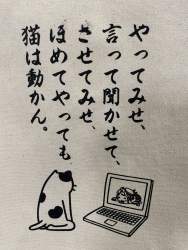 やってみせ、
言って聞かせて、
させてみせ、
ほめてやっても
猫は動かん。